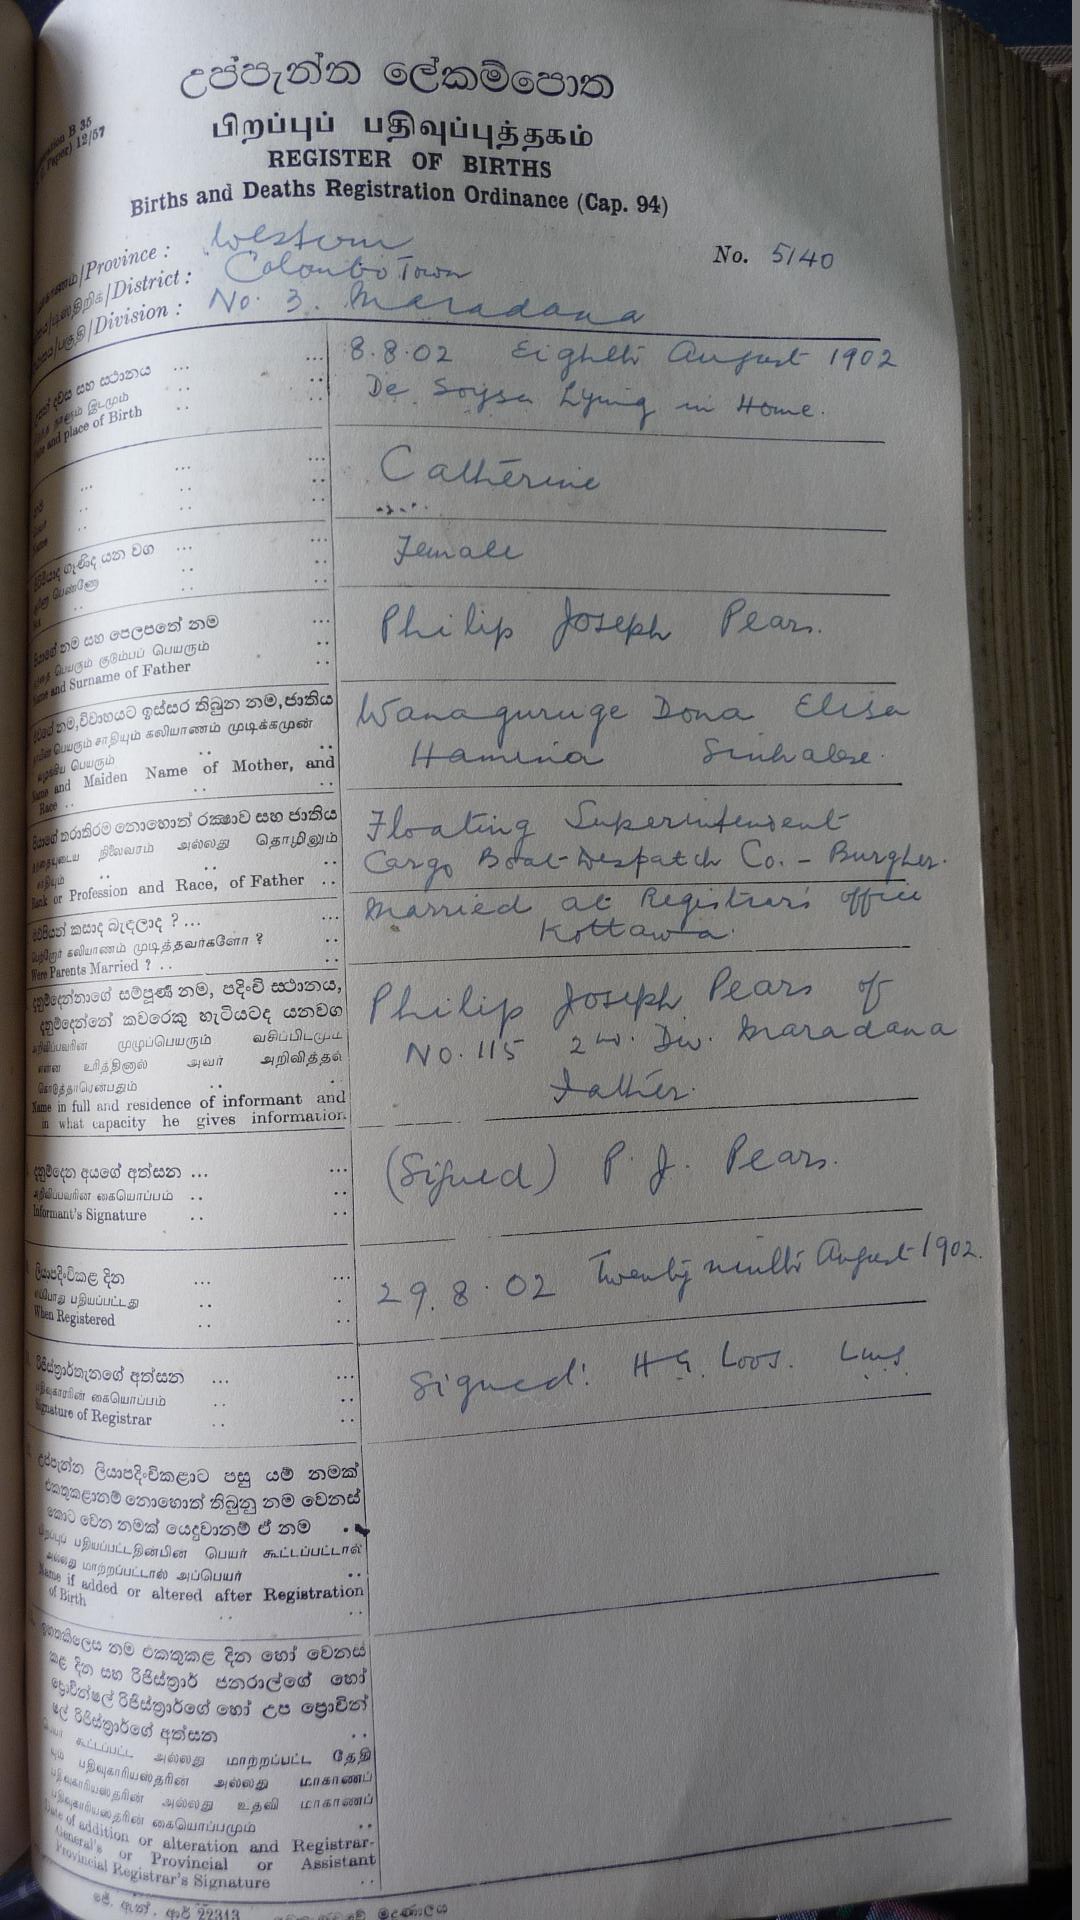 උප්පැන්න ලේකම්පොත
பிறப்புப் பதிவுப்புத்தகம்
REGISTER OF BIRTHS
Births and Deaths Registration Ordinance (Cap. 94)
B 35
Paper) 12/57
No. 5140
/Province : Western
/District : Colombo Town
/Division : No. 3. Maradana
දවස සහ ස්ථානය ...
and place of Birth
8.8.02 Eighth August 1902
De Soysa Lying in Home.
Name
Catherine
ගැණිද යන වග ...
பெண்ணோ
Female
නම සහ පෙලපතේ නම ...
பெயரும் குடும்பப் பெயரும்
Name and Surname of Father
Philip Joseph Pears.
නම,විවාහයට ඉස්සර තිබුන නම,ජාතිය
பெயரும் சாதியும் கலியாணம் முடிக்கமுன்
பெயரும்
Name and Maiden Name of Mother, and
Race ..
Wanaguruge Dona Elisa
Hamina Sinhalese.
තරාතිරම නොහොත් රක්ෂාව සහ ජාතිය
நிலைவரம் அல்லது தொழிலும்
Rank or Profession and Race, of Father ..
Floating Superintendent
Cargo Boat Despatch Co. - Burgher.
කසාද බැඳලාද ? ...
கலியாணம் முடித்தவர்களோ ?
Were Parents Married ? ..
Married at Registrar's office
Kottawa.
දනුම්දෙන්නාගේ සම්පූර්ණ නම, පදිංචි ස්ථානය,
දනුම්දෙන්නේ කවරෙකු හැටියටද යනවග
முழுப்பெயரும் வசிப்பிடமும்
என்ன உரித்தினால் அவர் அறிவித்தல்
கொடுத்தாரென்பதும்
Name in full and residence of informant and
in what capacity he gives information
Philip Joseph Pears of
No. 115 2nd. Div. Maradana
Father.
දනුම්දෙන අයගේ අත්සන ...
அறிவிப்பவரின் கையொப்பம் ..
Informant's Signature ..
(Signed) P. J. Pears.
ලියාපදිංචිකළ දින ...
பதியப்பட்டது ..
When Registered ..
29.8.02 Twenty ninth August 1902.
රෙජිස්ත්‍රාර්තැනගේ අත්සන ...
கையொப்பம் ..
Signature of Registrar ..
Signed: H G Loos. LMS
උප්පැන්න ලියාපදිංචිකළාට පසු යම් නමක්
එකතුකළානම් නොහොත් තිබුනු නම වෙනස්
කොට වෙන නමක් යෙදුවානම් ඒ නම
பிறப்புப் பதியப்பட்டதின்பின் பெயர் கூட்டப்பட்டால்
அல்லது மாற்றப்பட்டால் அப்பெயர்
Name if added or altered after Registration
of Birth
නම එකතුකළ දින හෝ වෙනස්
කළ දින සහ රෙජිස්ත්‍රාර් ජනරාල්ගේ හෝ
ප්‍රොවින්ෂල් රෙජිස්ත්‍රාර්ගේ හෝ උප ප්‍රොවින්
ෂල් රෙජිස්ත්‍රාර්ගේ අත්සන
கூட்டப்பட்ட அல்லது மாற்றப்பட்ட தேதி
பதிவுகாரியஸ்தரின் அல்லது மாகாணப்
பதிவுகாரியஸ்தரின் அல்லது உதவி மாகாணப்
பதிவுகாரியஸ்தரின் கையொப்பமும்
Date of addition or alteration and Registrar-
General's or Provincial or Assistant
Provincial Registrar's Signature
ජේ. ඇන්. ආර් 22313